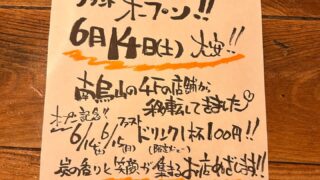 オープン!!
6月14日(土) 大安!!
古鳥山の4Fの店舗から
移転してきました♡
オープン記念!!
6/14(土) 6/15(日) ファースト ドリンク1杯100円!!
炭の香りと笑顔が集まるお店めざします!!